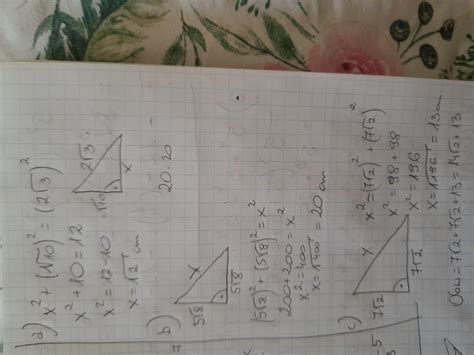 a) x²+(√10)²=(2√3)²
x²+10=12
x²=12-10
x=√2 cm
√10 2√3 x
20·20
b) 5√8 x 5√8
(5√8)²+(5√8)²=x²
200+200=x²
x²=400
x=√400=20 cm
c) 7√2 x 7√2
x²=(7√2)²+(7√2)²
x²=98+98
x²=196
x=√196=13cm
Obw=7√2+7√2+13=14√2+13